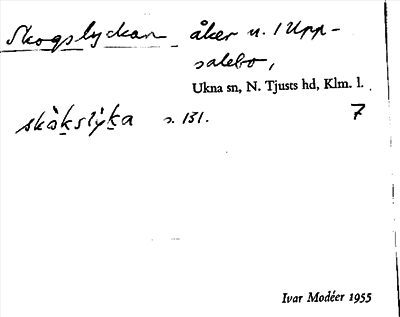 Skogslyckan åker u. 1 Upp-
salebo,
Ukna sn, N. Tjusts hd, Klm. l.
skòksly̆ka s. 131. 7
Ivar Modéer 1955